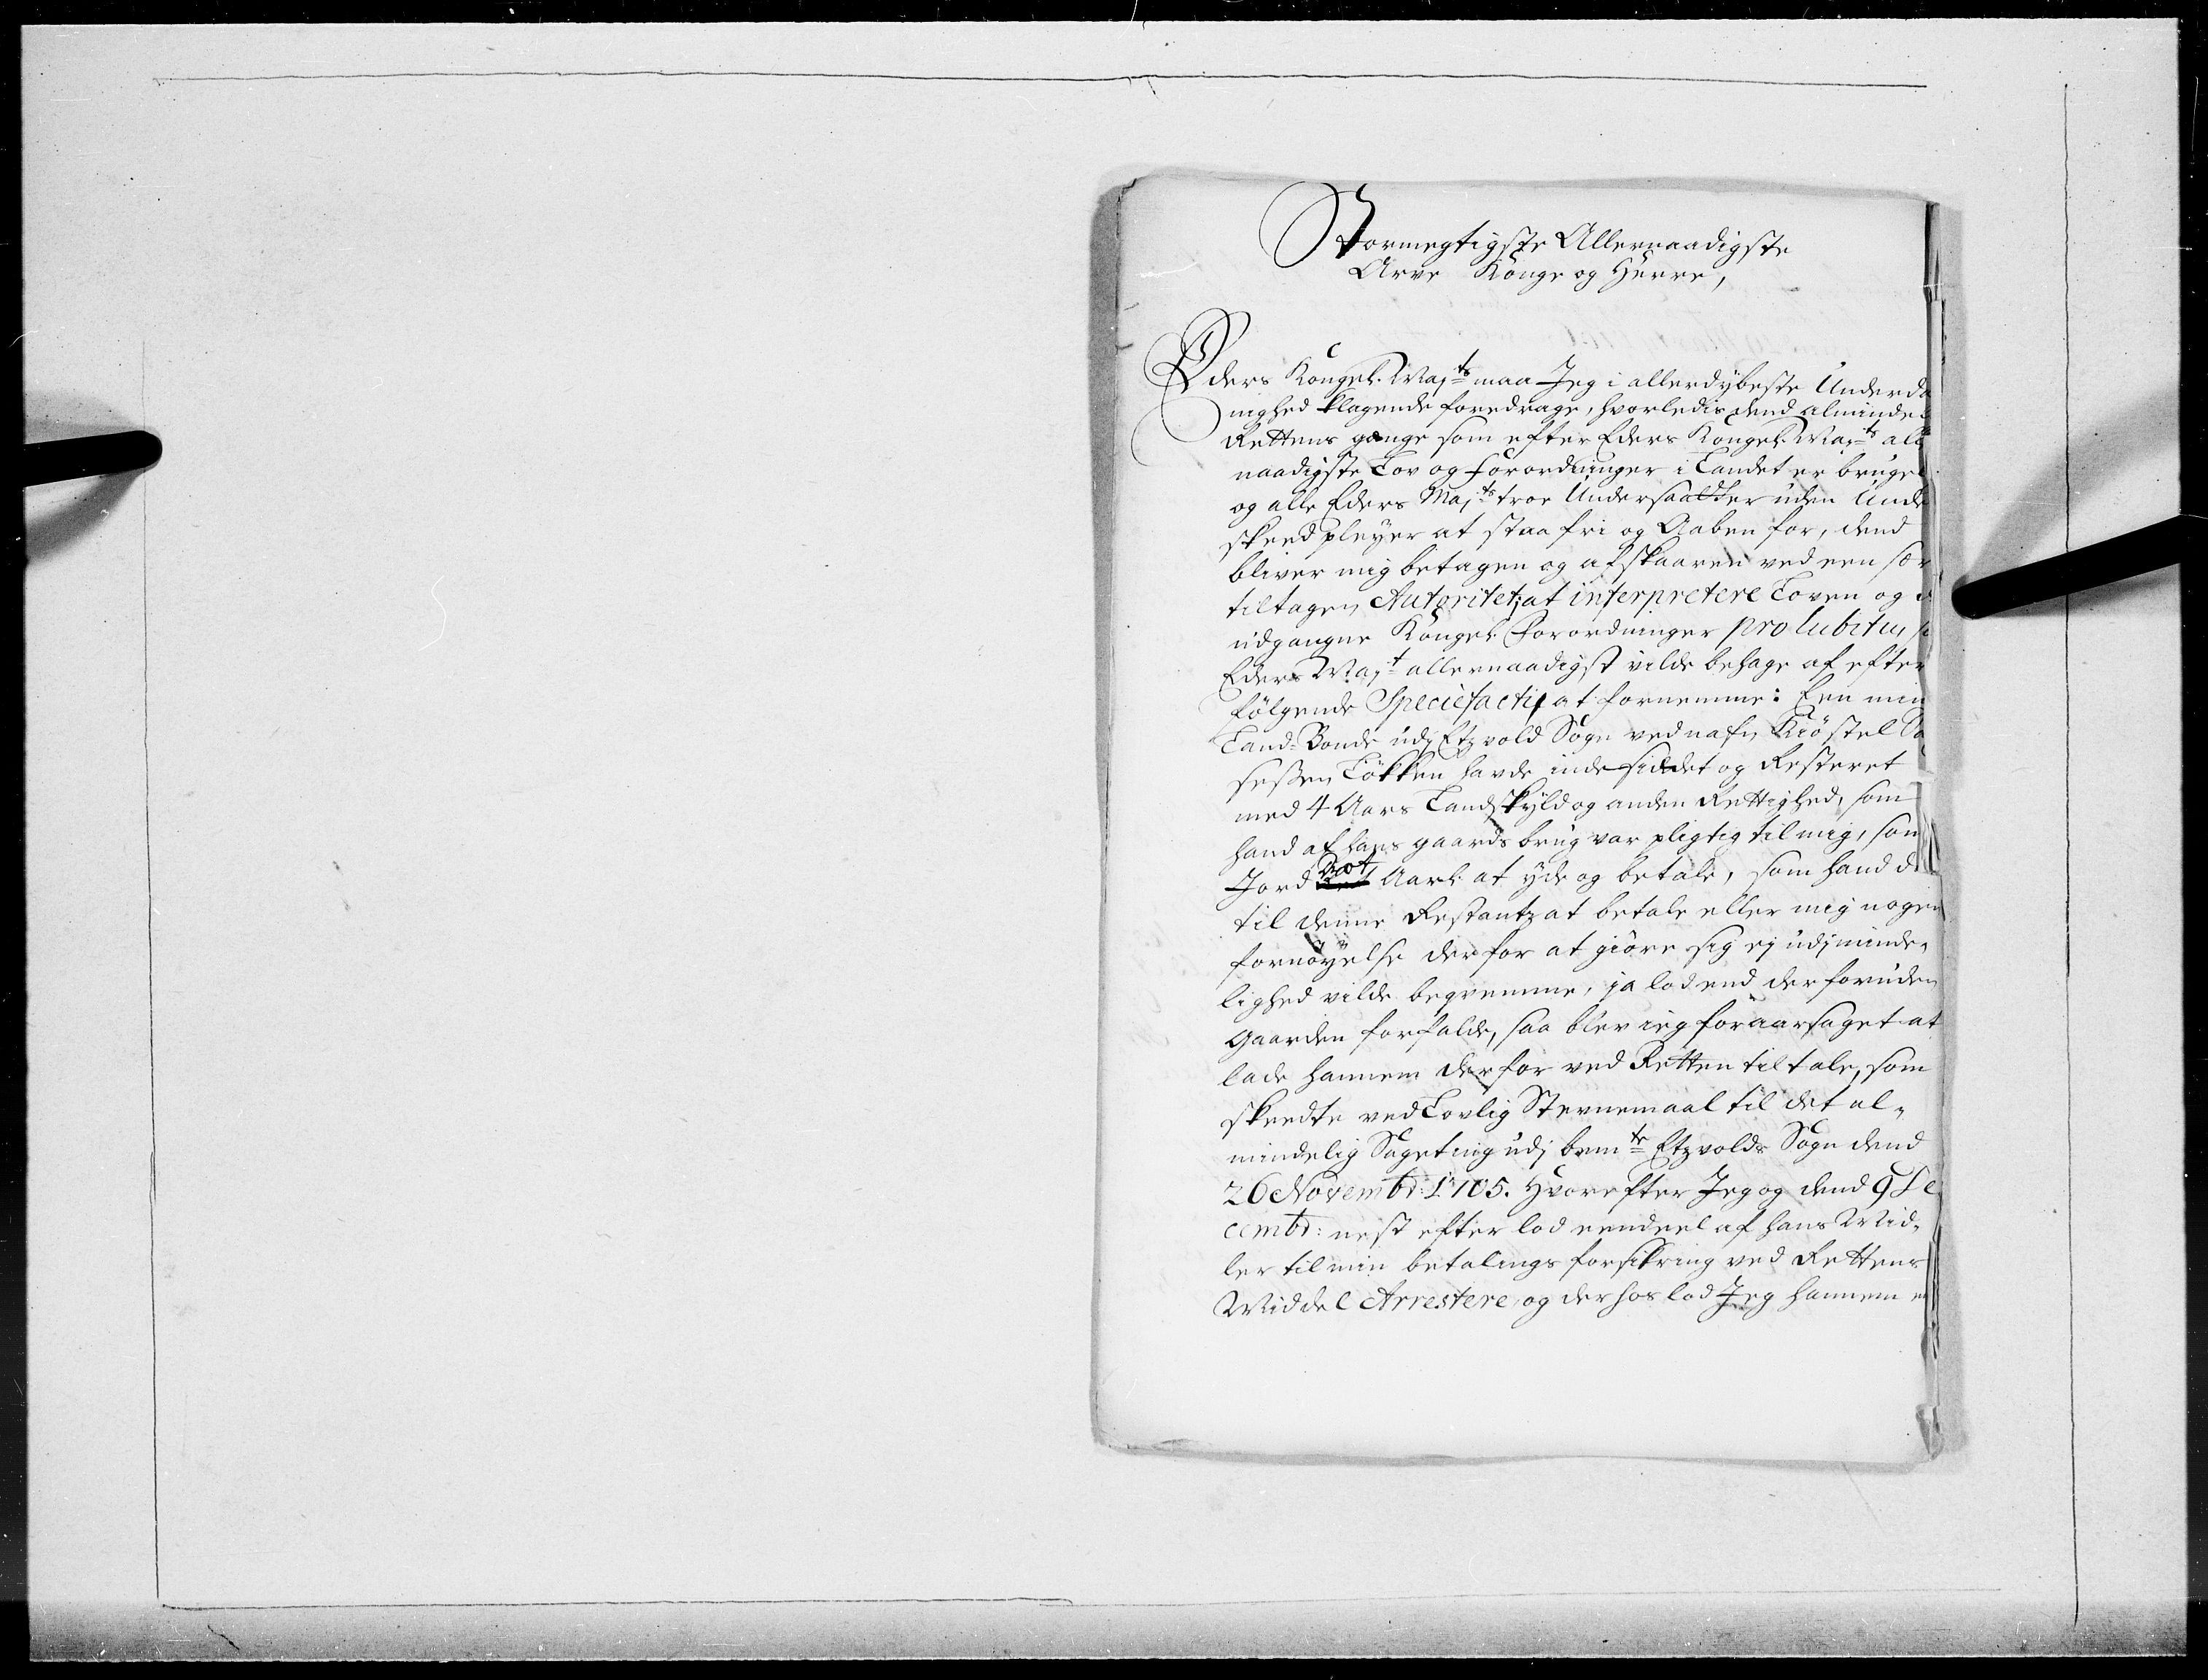 Stormegtigste Allernaadigste
Arve Konge og Herre,
Eders Kongel. Maj:ts maa Jeg i allerdybeste Underda
nighed klagende foredrage, hvorledis dend almindel
Rettens gange som efter Eders Kongel. Maj:ts all
naadigste Lov og forordninger i Landet er brugel
og alle Eders Maj:ts troe Undersaatter uden Unde
skeed pleyer at staa fri og Aaben for, dend
bliver mig betagen og afskaaren ved een sær
tiltagen Autoritet, at interpretere Loven og d
udgangne Kongel. Forordninger pro lubitu, s
Eders Maj:t allernaadigst vilde behage af efter
følgende Speciefacti, at fornemme: Een min
Land-Bonde udj Etzvold Sogn ved nafn Kiøstel So
sessen Løkken havde indesiddet og Resteret
med 4 Aars Landskyld og anden Rettighed, som
hand af hans gaards brug var pligtig til mig, som
Jord Drot Aarl. at yde og betale, som hand d
til denne Restantz at betale eller mig nogen
fornøyelse derfor at giøre sig ej udj minde-
lighed vilde beqvemme, ja lod end der foruden
Gaarden forfalde, saa blev ieg foraarsaget at
lade hannem derfor ved Retten tiltale, som
skeedte ved Lovlig Stevnemaal til det al-
mindelig Sageting udj bem:te Etzvolds Sogn dend
26 Novembr: 1705. Hvorefter Jeg og dend 9 De
cembr: nest efter lod eendeel af hans Mid-
ler til min betalings forsikring ved Rettens
Middel Arrestere, og derhos lod Jeg hannem